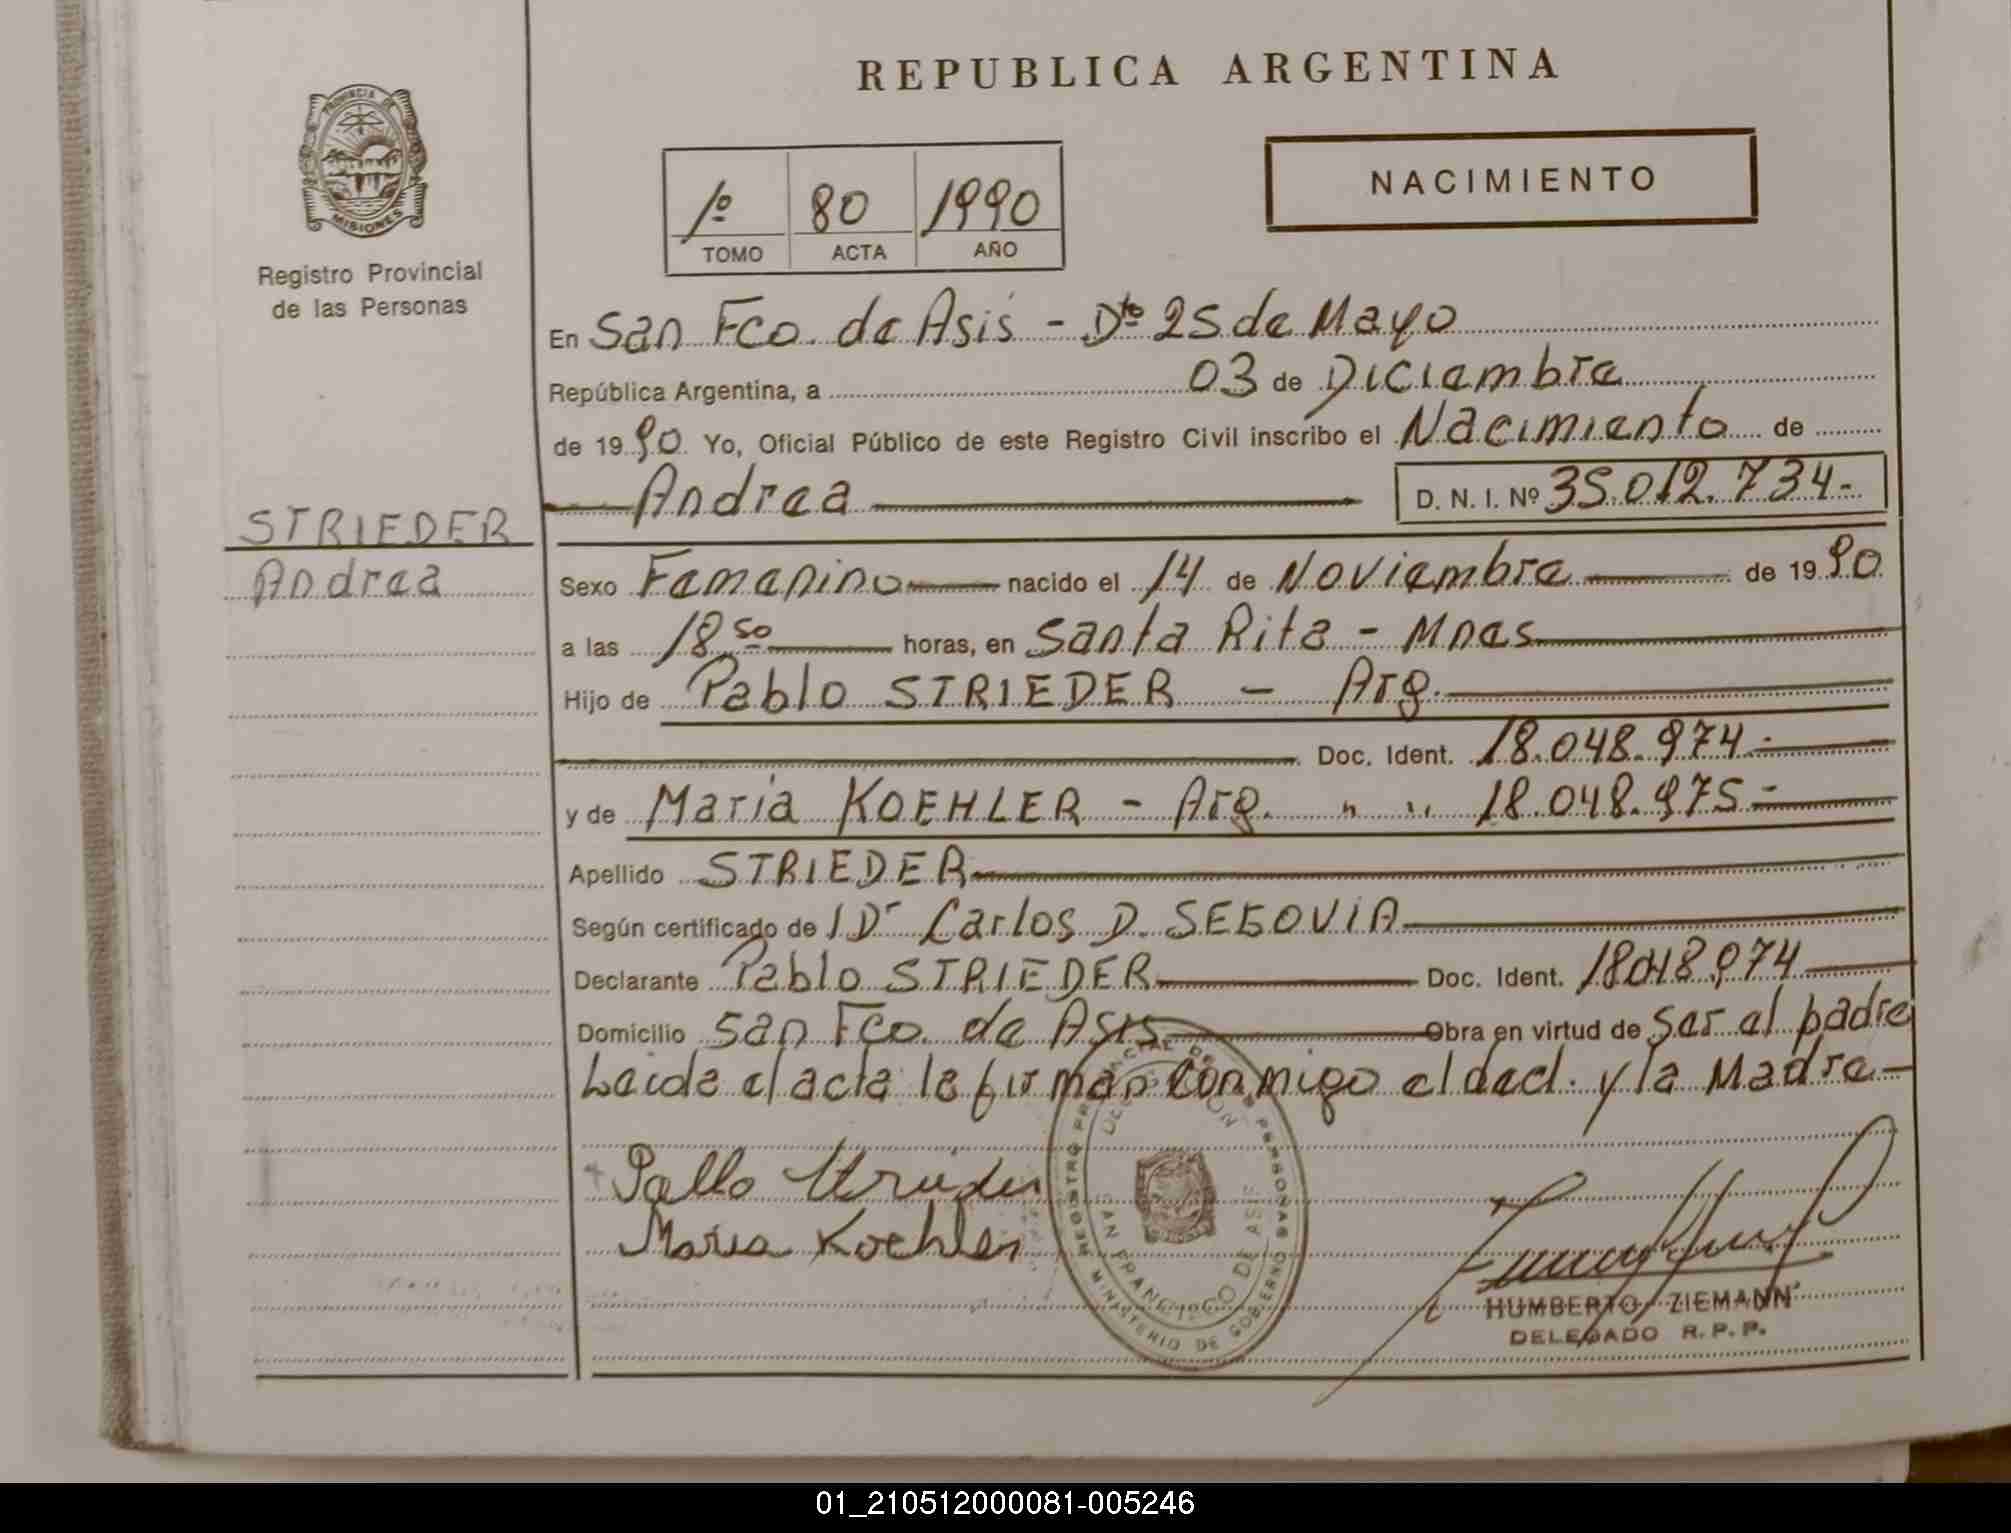 REPUBLICA ARGENTINA
PROVINCIA DE
MISIONES
Registro Provincial
de las Personas
NACIMIENTO
1º 80 1990
TOMO ACTA AÑO
En San Fco. de Asis - Dto 25 de Mayo
República Argentina, a 03 de Diciembre
de 1990 Yo, Oficial Público de este Registro Civil inscribo el Nacimiento de
Andrea D. N. I. Nº 35.012.734-
STRIEDER
Andrea
Sexo Femenino nacido el 14 de Noviembre de 1990
a las 18 50 horas, en Santa Rita - Mnes
Hijo de Pablo STRIEDER - Arg.
Doc. Ident. 18.048.974.-
y de Maria KOEHLER - Arg. " " 18.048.975.-
Apellido STRIEDER
Según certificado de 1 Dr Carlos D. SEGOVIA
Declarante Pablo STRIEDER Doc. Ident. 18.048.974
Domicilio San Fco. de Asis Obra en virtud de ser el padre
Leida el acta la firman conmigo el decl. y la Madre-
Pablo Strieder
Maria Koehler
REGISTRO PROVINCIAL DE LAS PERSONAS
DELEGACION
SAN FRANCISCO DE ASIS
MINISTERIO DE GOBIERNO
HUMBERTO ZIEMANN
DELEGADO R. P. P.
01_210512000081-005246